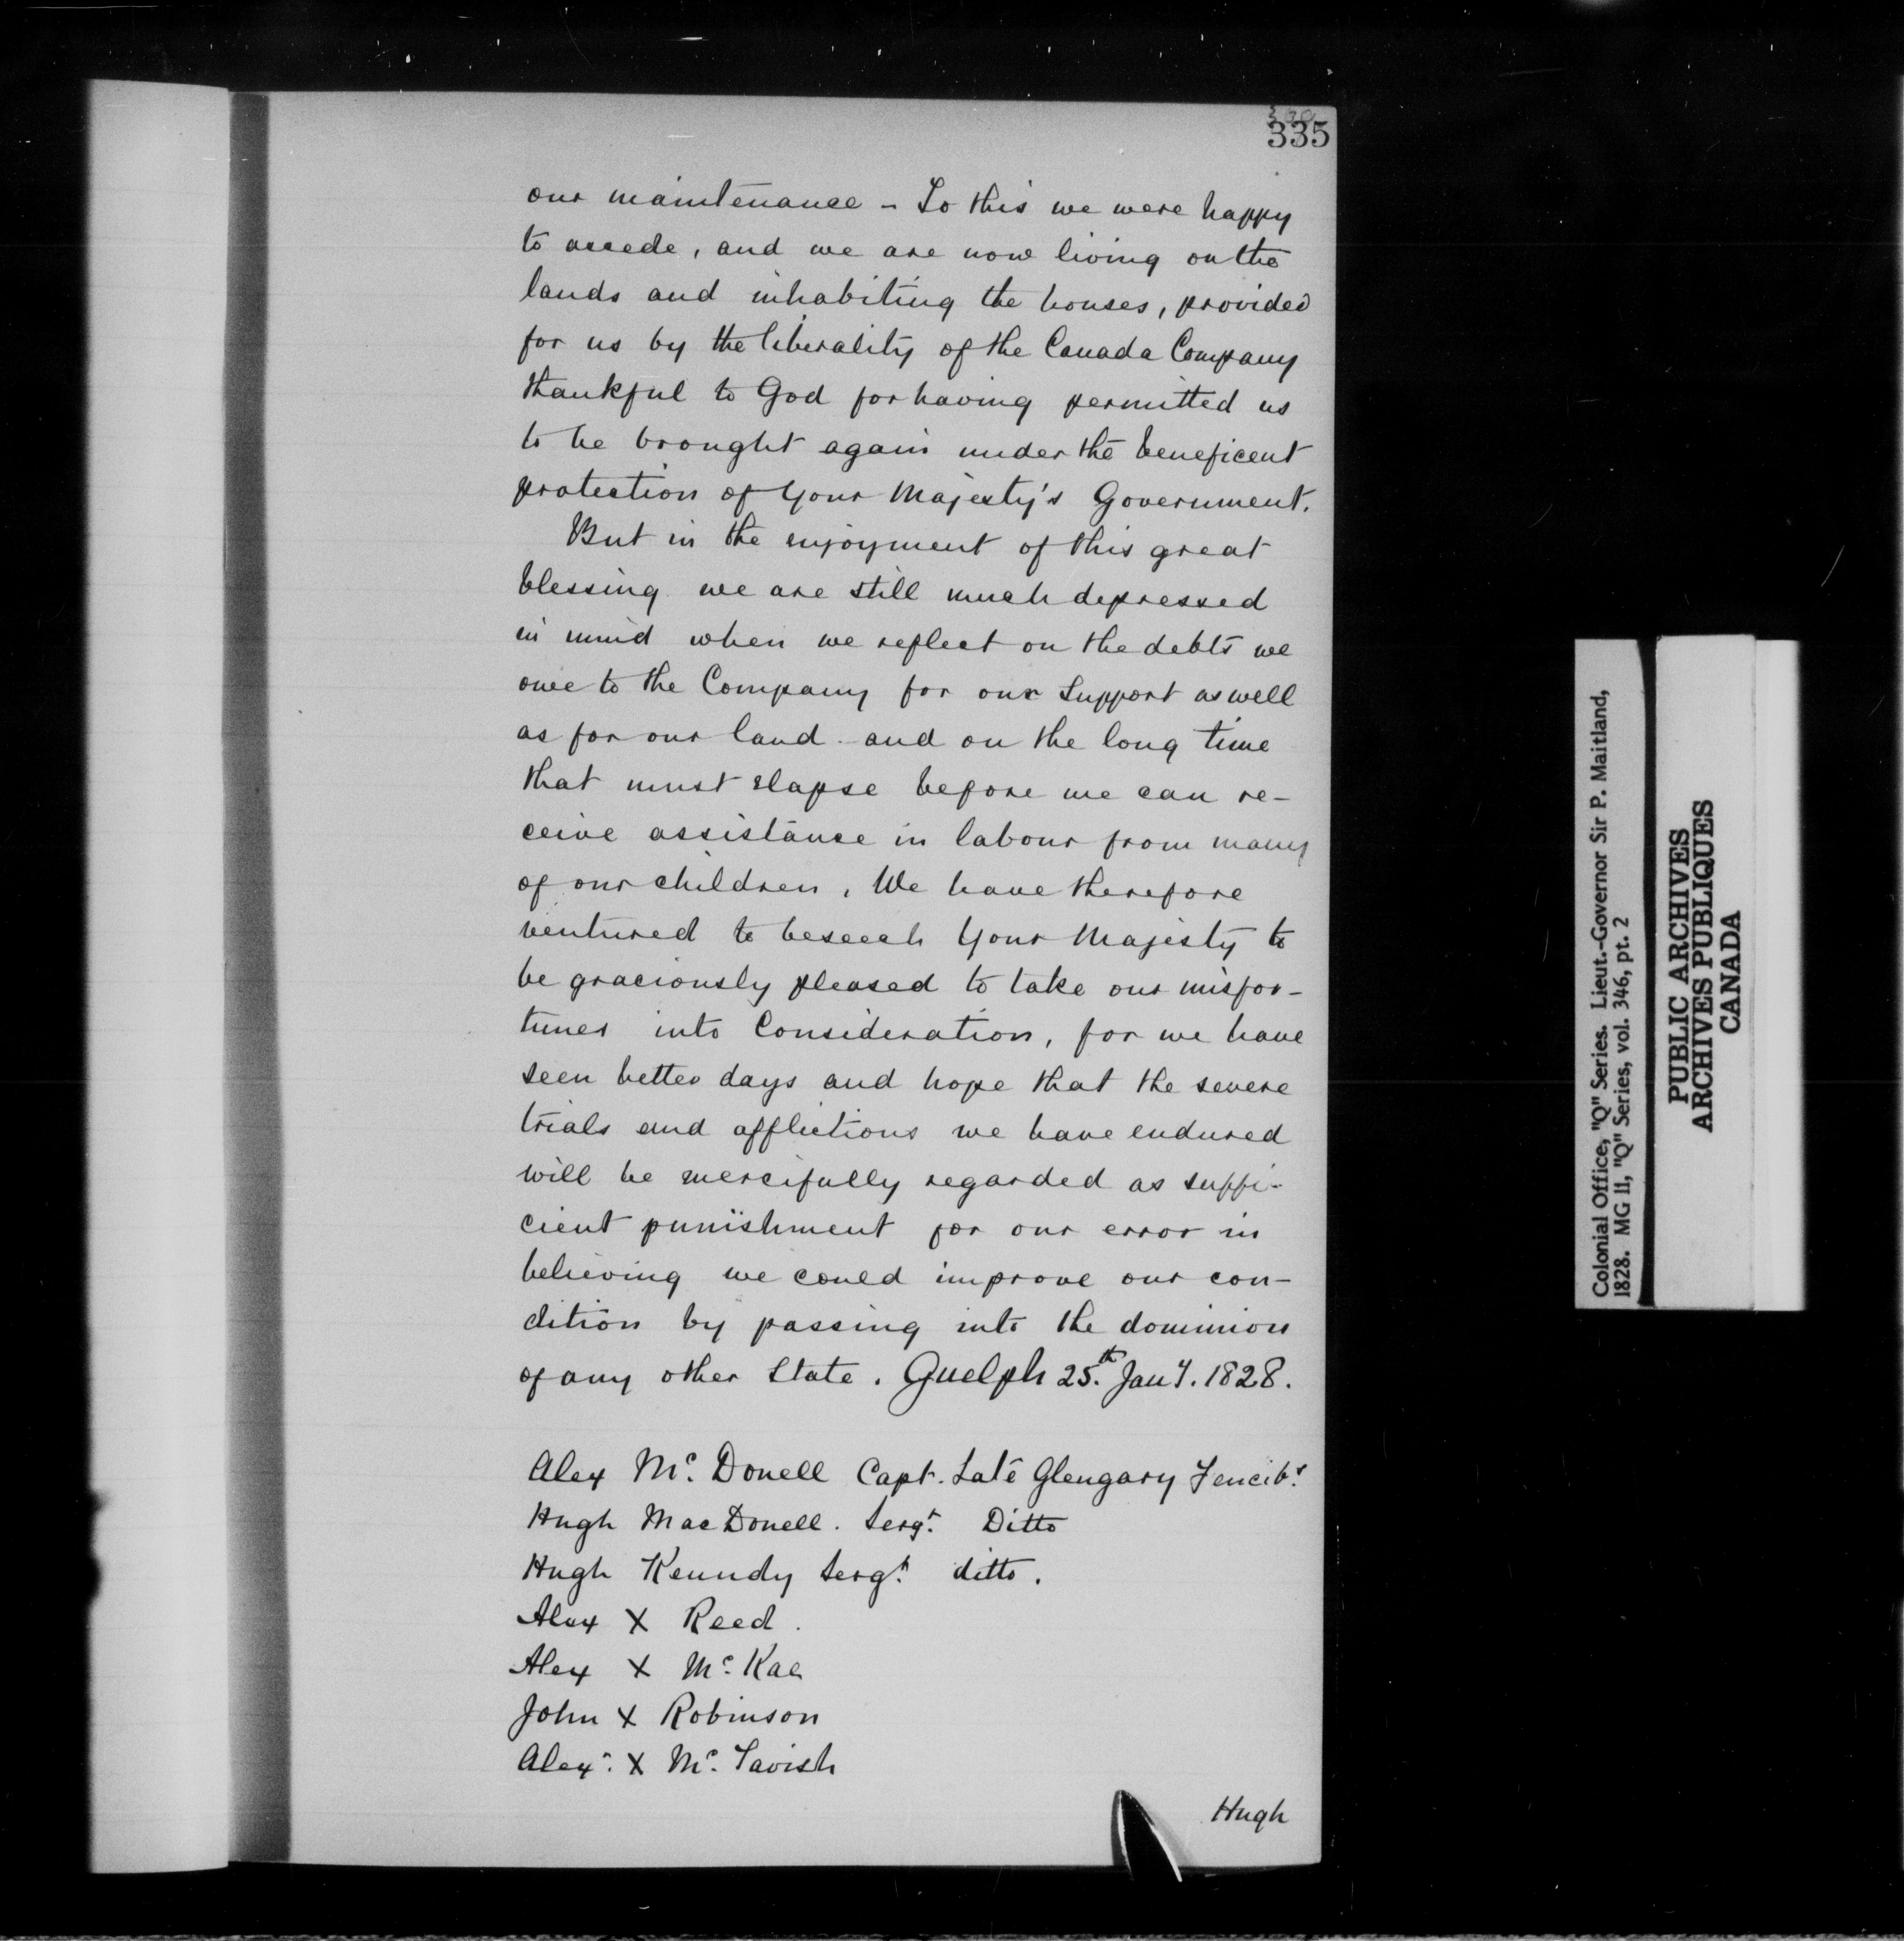 335
our maintenance - To this we were happy
to accede, and we are now living on the
lands and inhabiting the houses, provided
for us by the liberality of the Canada Company
thankful to God for having permitted us
to be brought again under the beneficent
protection of Your Majesty's Government.
But in the enjoyment of this great
blessing we are still much depressed
in mind when we reflect on the debts we
owe to the Company for our Support as well
as for our land - and on the long time
that must elapse before we can re-
ceive assistance in labour from many
of our children. We have therefore
ventured to beseech Your Majesty to
be graciously pleased to take our misfor-
tunes into Consideration, for we have
seen better days and hope that the severe
trials and afflictions we have endured
will be mercifully regarded as suffi-
cient punishment for our error in
believing we could improve our con-
dition by passing into the dominion
of any other State. Guelph 25.th Jany. 1828.
Alex Mc. Donell Capt. Late Glengary Fencibs.
Hugh MacDonell. Sergt. Ditto
Hugh Kenndy Sergt. ditto.
Alex X Reed.
Alex X Mc. Kae
John X Robinson
Alexr. X Mc. Tavish
Hugh
Colonial Office, "Q" Series. Lieut.-Governor Sir P. Maitland,
1828. MG 11, "Q" Series, vol. 346, pt. 2
PUBLIC ARCHIVES
ARCHIVES PUBLIQUES
CANADA